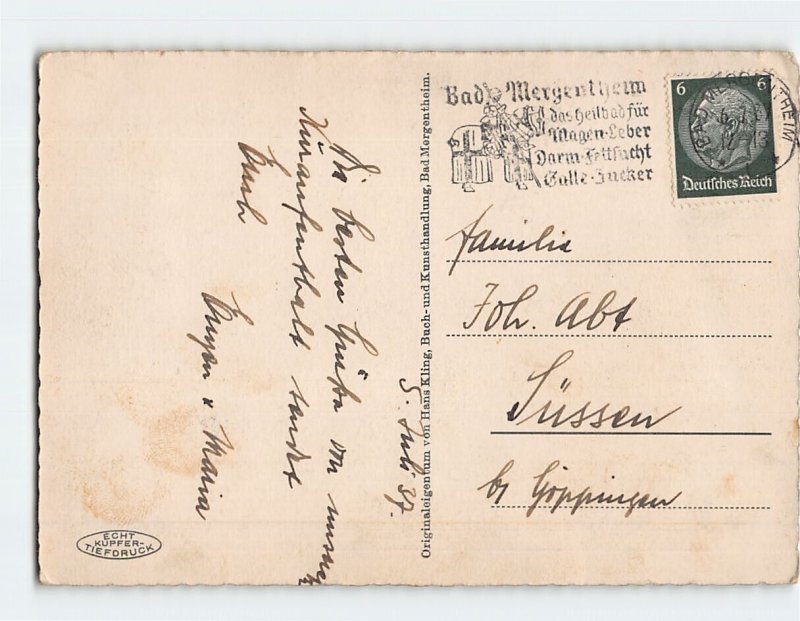 Bad Mergentheim
das Heilbad für
Magen-Leber
Darm-Fettsucht
Galle-Zucker
BAD MERGENTHEIM
6 6
Deutsches Reich
5. Juli 37.
Die besten Grüße von unserem
Kuraufenthalt sendet
Euch
Eugen u Maria
Originaleigentum von Hans Kling, Buch- und Kunsthandlung, Bad Mergentheim.
Familie
Joh. Abt
Süssen
b/ Göppingen
ECHT
KUPFER-
TIEFDRUCK